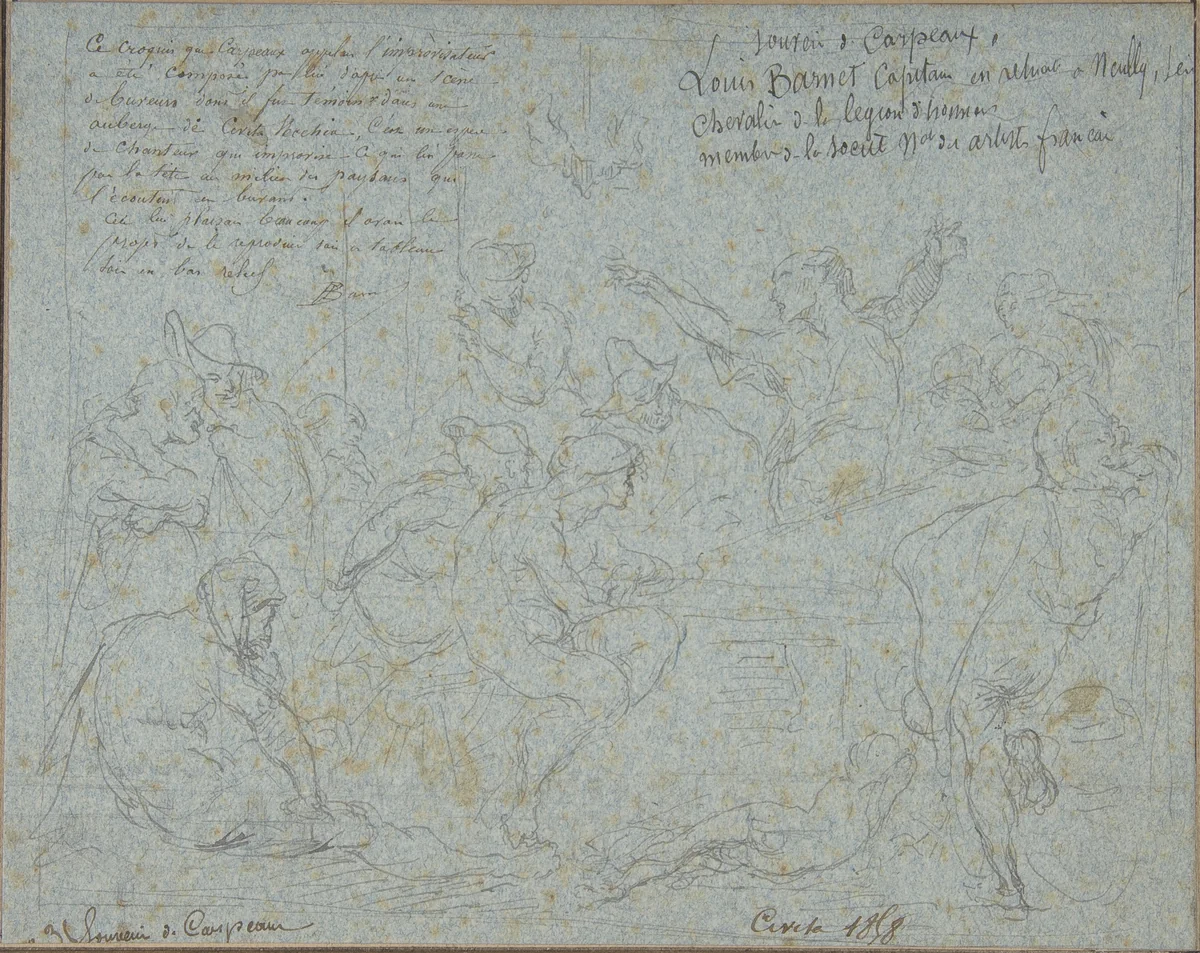 Ce croquis que Carpeaux appelai l'improvisateur
a été composé par lui d'après un scene
de buveurs dont il fut témoins dans une
auberge de Civita Vecchia, C'est un espece
de chanteur qui improvise ce qui lui passe
par la tête au milieu des paysans qui
l'écoutent en buvant.
Cela lui plaisai beaucoup il avai le
projet de le reproduire soi a tableau
soi en bas relief
souvenir de Carpeaux
Louis Barnet Capitain en retraite a Neuilly,
Chevalier de la legion d'honneur
membre de la Société Nal des artistes francai
Souvenir de Carpeaux
Civita 1858